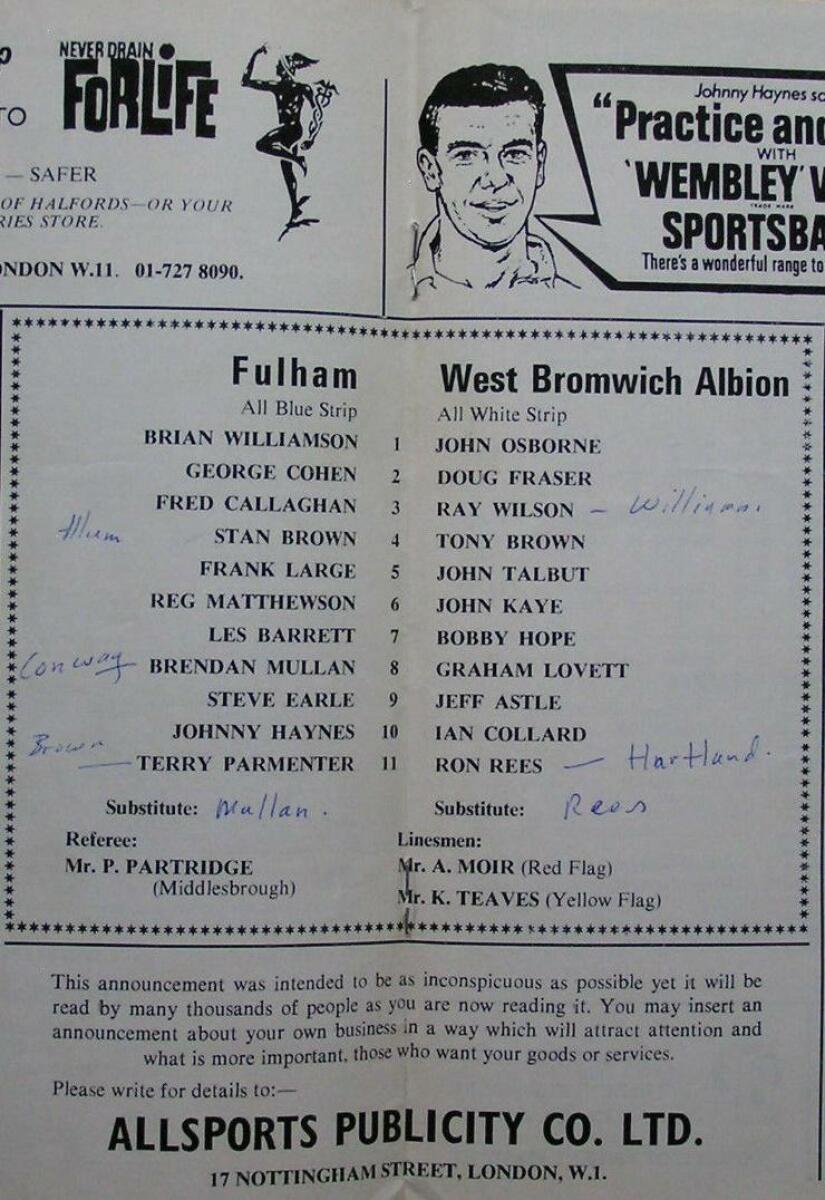 NEVER DRAIN
FORLIFE
TO
— SAFER
OF HALFORDS—OR YOUR
RIES STORE.
ONDON W.11. 01-727 8090.
Johnny Haynes sa
"Practice and
WITH
'WEMBLEY' V
TRADE MARK
SPORTSBA
There's a wonderful range to
Fulham West Bromwich Albion
All Blue Strip All White Strip
BRIAN WILLIAMSON 1 JOHN OSBORNE
GEORGE COHEN 2 DOUG FRASER
FRED CALLAGHAN 3 RAY WILSON – Williams.
STAN BROWN 4 TONY BROWN
FRANK LARGE 5 JOHN TALBUT
REG MATTHEWSON 6 JOHN KAYE
LES BARRETT 7 BOBBY HOPE
Conway – BRENDAN MULLAN 8 GRAHAM LOVETT
STEVE EARLE 9 JEFF ASTLE
JOHNNY HAYNES 10 IAN COLLARD
Brown — TERRY PARMENTER 11 RON REES — Hartland.
Substitute: Mullan. Substitute: Rees
Referee: Linesmen:
Mr. P. PARTRIDGE Mr. A. MOIR (Red Flag)
(Middlesbrough) Mr. K. TEAVES (Yellow Flag)
This announcement was intended to be as inconspicuous as possible yet it will be
read by many thousands of people as you are now reading it. You may insert an
announcement about your own business in a way which will attract attention and
what is more important, those who want your goods or services.
Please write for details to:—
ALLSPORTS PUBLICITY CO. LTD.
17 NOTTINGHAM STREET, LONDON, W.1.